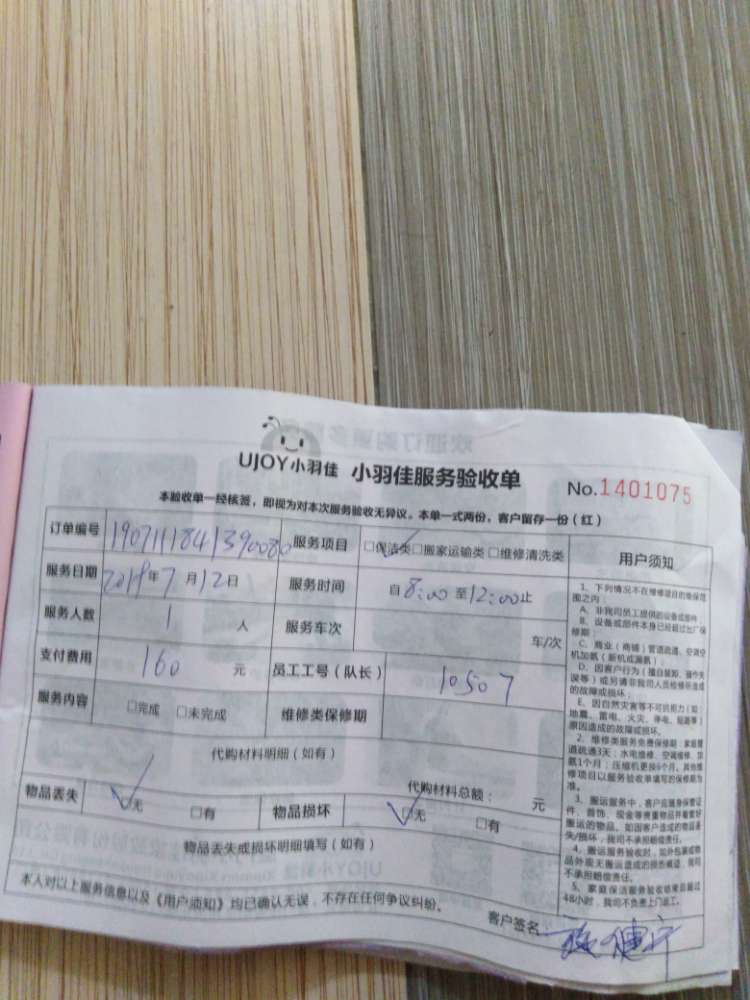 UJOY小羽佳 小羽佳服务验收单 No.1401075
本验收单一经核签，即视为对本次服务验收无异议。本单一式两份，客户留存一份（红）
订单编号 190711184139008 服务项目 □保洁类□搬家运输类□维修清洗类 用户须知
服务日期 2019年7月12日 服务时间 自8:00至12:00止
服务人数 1 人 服务车次 车/次
支付费用 160 元 员工工号（队长） 10507
服务内容 □完成 □未完成 维修类保修期
代购材料明细（如有）
代购材料总额： 元
物品丢失 □无 □有 物品损坏 □无 □有
物品丢失或损坏明细填写（如有）
本人对以上服务信息以及《用户须知》均已确认无误，不存在任何争议纠纷。
客户签名
1、下列情况不在维修项目的维保范
围之内：
A、非我司员工提供的设备或部件；
B、设备或部件本身已经超过出厂保
修期；
C、商业（商铺）管道疏通、空调空
机加氨（新机或漏氨）；
D、因客户行为（擅自装卸、操作失
误等）或另请非我司人员检修所造成
的故障或损坏；
E、因自然灾害等不可抗拒力（如：
地震、雷电、火灾、停电、短路等）
原因造成的故障或损坏。
2、维修类服务免费保修期：家庭管
道疏通3天；水电维修、空调维修、加
氨1个月；压缩机更换6个月。其他维
修项目以服务验收单填写的保修期为
准。
3、搬运服务中，客户应随身保管证
件、首饰、现金等贵重物品并看管好
搬运的物品。如因客户造成的物品丢
失/损坏，我司不承担赔偿责任。
4、搬运服务验收时，如外包装或物
品外观无搬运造成的损伤痕迹，我司
不承担赔偿责任。
5、家庭保洁服务验收结束后超过
48小时，我司不负责上门返工。